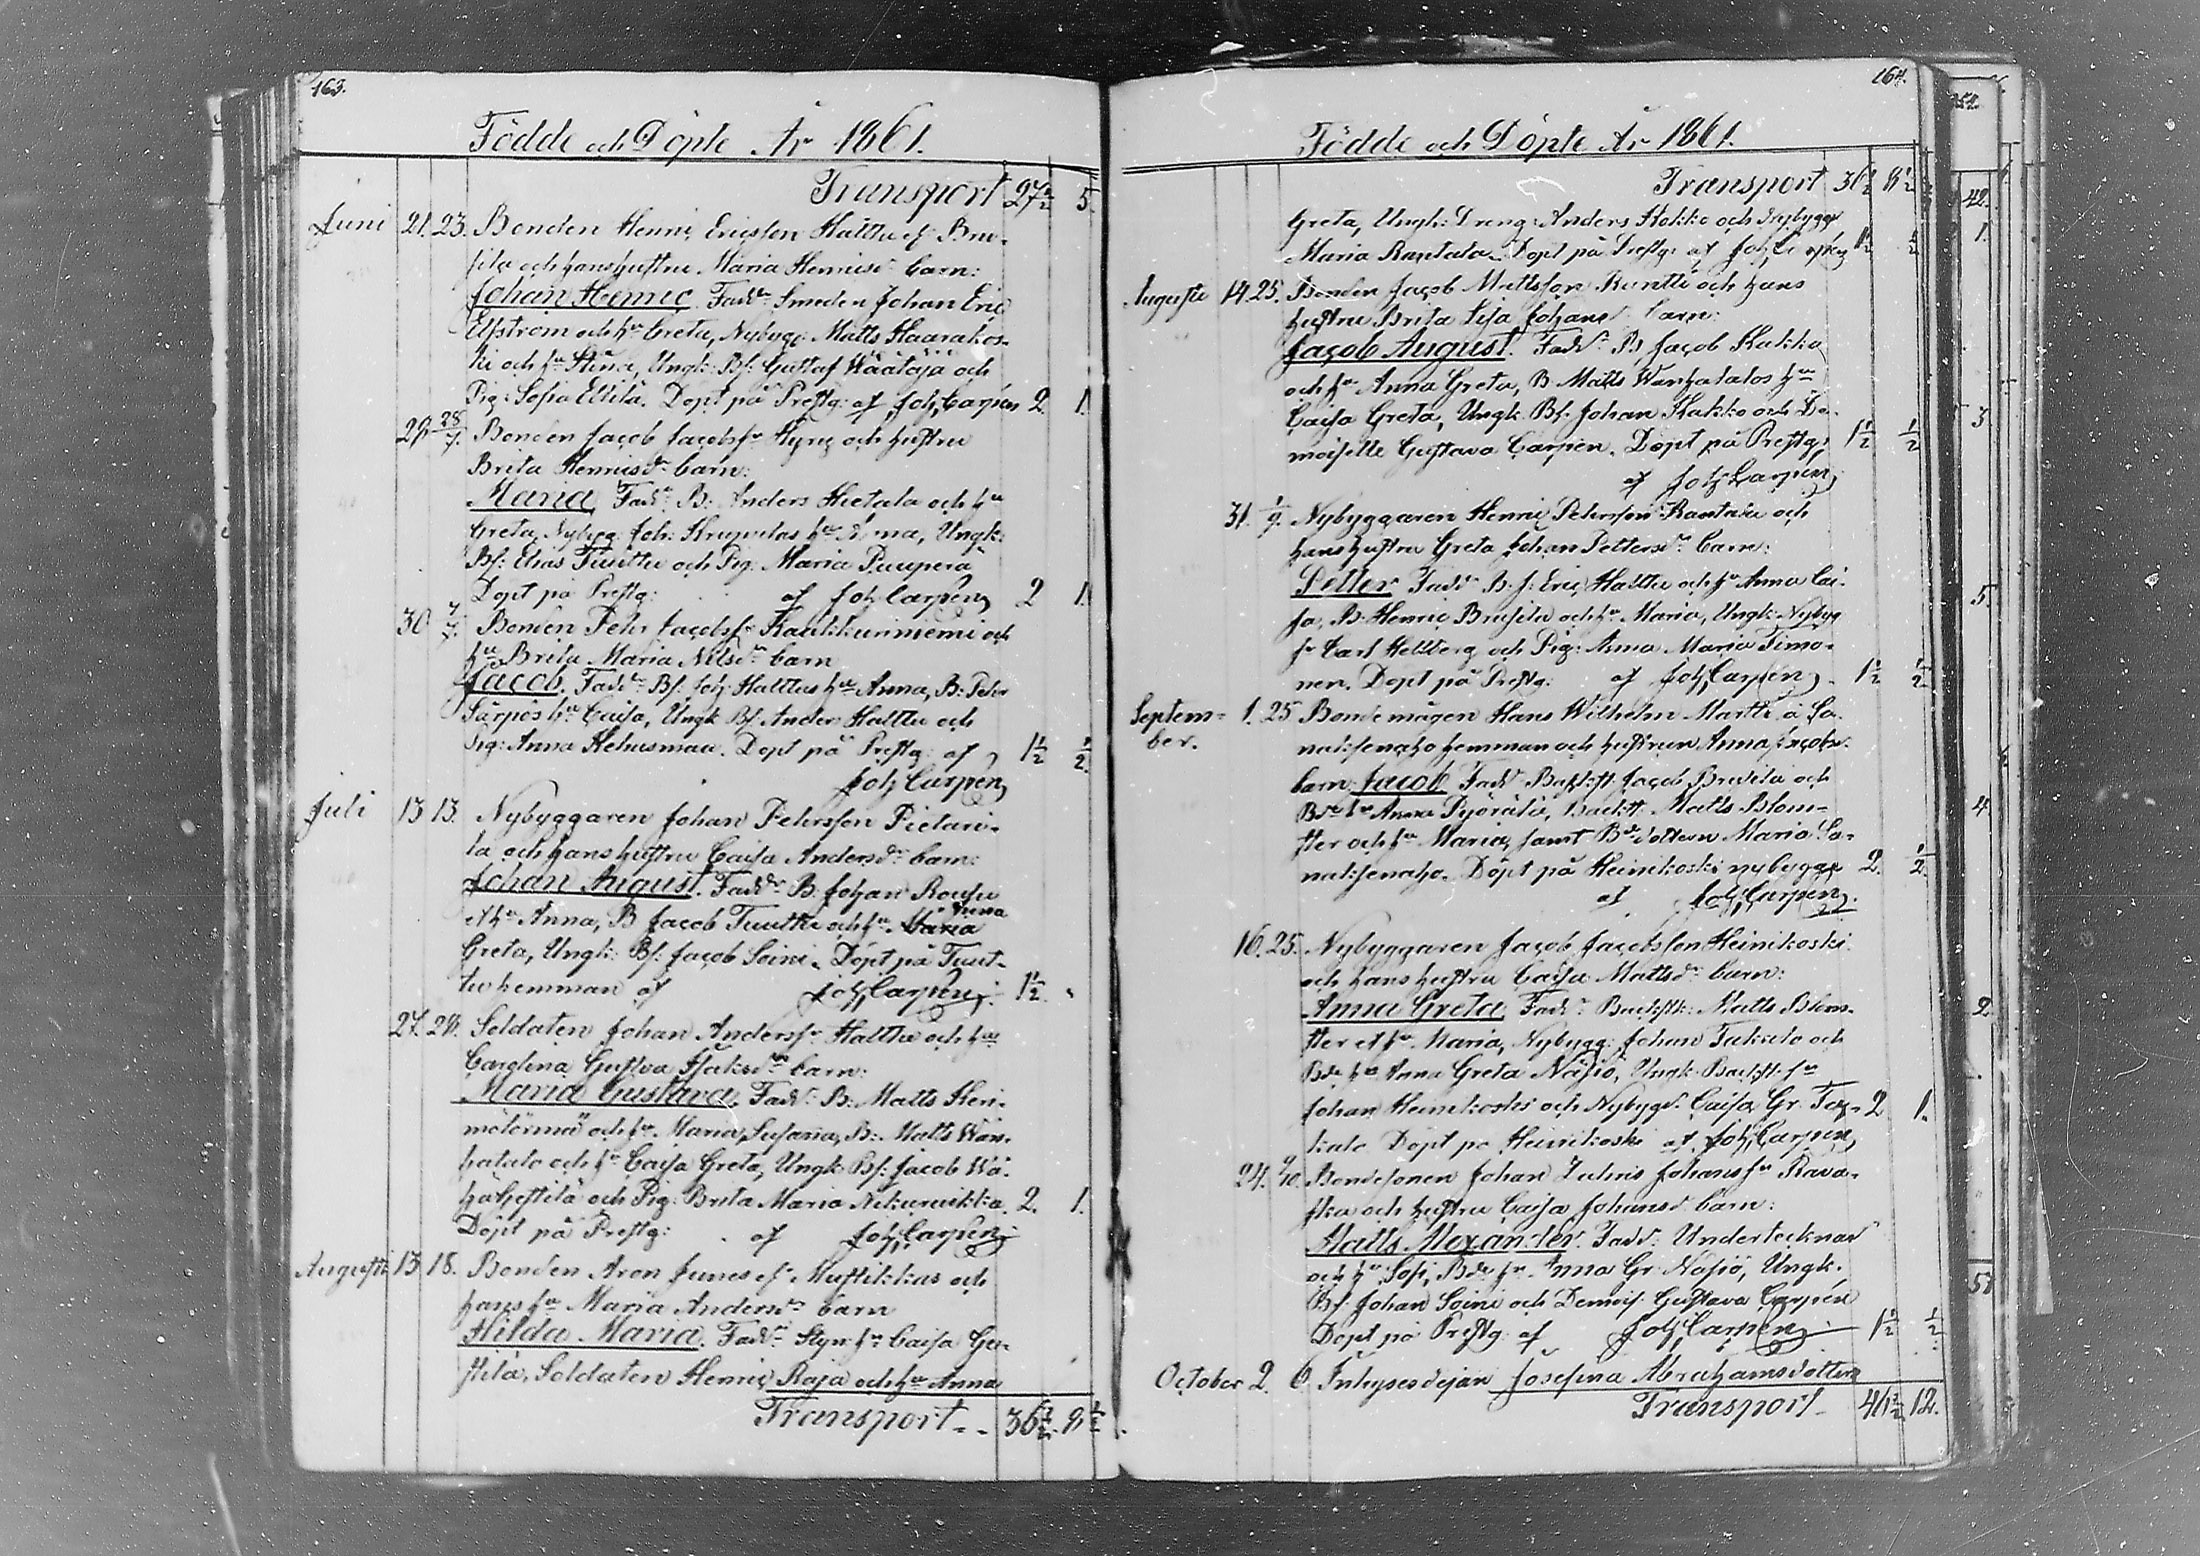 163.
Födde och Döpte År 1861.
Transport 27½ 5.
Juni 21. 23. Bonden Henric Ericsson Halttu el. Bru-
sila och hans hustru Maria Henricsdr barn:
Johan Henric. Fadd: Smeden Johan Eric
Elfström och hu Greta, Nybygg: Matts Haarakos-
ki och hu Stina, Ungk: Bs: Gustaf Wäätäjä och
Pig: Sofia Ettilä. Döpt på Prestg: af Joh. Carpén 2 1.
29 28/7. Bonden Jacob Jacobss: Hyry och hustru
Brita Henricsdr barn:
Maria, Fadd: B: Anders Hietala och hu
Greta, Nybygg: Joh: hu Anna, Ungk:
Bs: Elias Tuuttu och Pig: Maria Puuperä
Döpt på Prestg: af Joh. Carpén 2 1.
30 7/7. Bonden Pehr Jacobss: Kaakkuriniemi och
hu Brita Maria Nilsdr barn
Jacob. Fadd: Bs: Joh. Halttus hu Anna, B: Pehr
Särpös hu Caisa, Ungk Bs: Anders Halttu och
Pig: Anna Kehusmaa. Döpt på Prestg: af 1½ ½.
Joh. Carpén
Juli 13 13. Nybyggaren Johan Pehrsson Pietari-
la och hans hustru Caisa Andersdr barn:
Johan August. Fadd: B. Johan Rousu
et hu Anna, B Jacob Tuuttu och hu Maria Anna
Greta, Ungk: Bs: Jacob Soini. Döpt på Tuut-
tu hemman af Joh. Carpén. 1½.
27. 28. Soldaten Johan Anderss: Halttu och hu
Carolina Gustva Isaksdr barn:
Maria Gustava. Fadd: B: Matts Keri-
mötörmä och hu Maria, B: Matts Wan-
hatalo och hu Caisa Greta, Ungk: Bs: Jacob Wä-
hähettilä och Pig: Brita Maria 2. 1.
Döpt på Prestg: af Joh. Carpén
Augusti 13 18. Bonden Aron el. Mustikkas och
hans hu Maria Andersdr barn
Hilda Maria. Fadd: hu Caisa Gu-
stilä, Soldaten Henric Raja och hu Anna
Transport - - 36½. 8½
164.
Födde och Döpte År 1861.
Transport 36½ 8½
Greta, Ungk: Dreng: Anders Kokko och Nybygg:
Maria Rantala. Döpt på Prestg: af Joh. Carpén 1½ ½
Augusti 14 25. Bonden Jacob Mattsson Runtti och hans
hustru Brita Lisa Johansd. barn:
Jacob August. Fadd: B Jacob Kakko
och hu Anna Greta, B. Matts Wanhatalos hu
Caisa Greta, Ungk: Bs: Johan Kakko och De-
moiselle Gustava Carpén. Döpt på Prestg: 1½ ½
af Joh Carpén
31. 1/9. Nybyggaren Henric Pehrsson Rantala och
hans hustru Greta Johan Pettersdr barn:
Petter Fadd: B. s: Eric Halttu och hu Anna Cai-
sa, B: Henric Brusila och hu Maria, Ungk: Nybygg
s: Carl Hellberg och Pig: Anna Maria Timo-
nen. Döpt på Prestg: af Joh. Carpén. 1½ ½
Septem- 1. 25 Bondemågen Hans Wilhelm Martti å Sa-
ber. naksenaho hemman och hustrun Anna Jacobsd.
barn Jacob. Fadd: Jacob Brusila och
hu Anna Pyörälä, Matts Blom-
ster och hu Maria, samt Bdedottern Maria Sa-
naksenaho. Döpt på Heinikoski nybygge 2. ½.
af Joh. Carpén.
16. 25. Nybyggaren Jacob Jacobsson Heinikoski
och hans hustru Caisa Mattsdr barn:
Anna Greta Fadd: Matts Blom-
ster et hu Maria, Nybygg: Johan Takalo och
Bde hu Anna Greta Näsiö, Ungk.
Johan Heinikoski och Nybygd. Caisa Gr. Ta- 2 1.
kalo Döpt på Heinikoski af Joh. Carpén
24. Bondesonen Johan Julius Johanss: Rava-
ska och hustru Caisa Johansd: barn:
Matts Alexander. Fadd: Undertecknad
och hu Sofi, Bde hu Anna Gr. Näsiö, Ungk.
Bs. Johan Soini och Demois. Gustava Carpén
Döpt på Prestg: af Joh. Carpén 1½ ½.
October 2. 6 Inhysespigan Josefina Abrahamsdotters
Transport - 46½ 12.
42.
1.
3.
5.
4.
2.